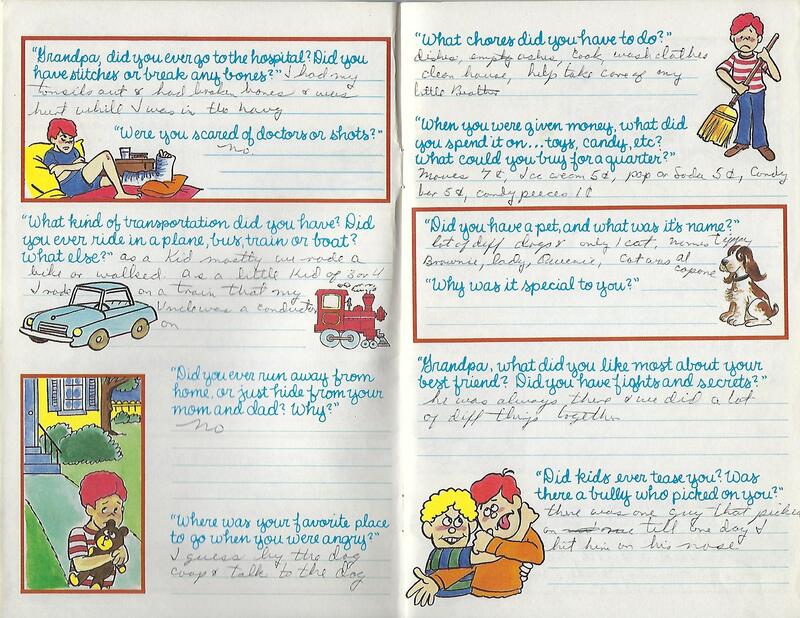 "Grandpa, did you ever go to the hospital? Did you
have stitches or break any bones?" I had my
tonsils out & had broken bones & was
hurt while I was in the navy
"Were you scared of doctors or shots?"
no.
"What kind of transportation did you have? Did
you ever ride in a plane, bus, train or boat?
What else?" as a Kid mostly we rode a
bike or walked. as a little Kid of 3 or 4
I rode on a train that my
Uncle was a conductor
on
"Did you ever run away from
home, or just hide from your
mom and dad? Why?"
no
"Where was your favorite place
to go when you were angry?"
I guess by the dog
coop & talk to the dog
"What chores did you have to do?"
dishes, empty ashes, Cook, wash clothes
clean house, help take care of my
little Brother
"When you were given money, what did
you spend it on... toys, candy, etc?
What could you buy for a quarter?"
Moves 7¢, Ice cream 5¢, pop or Soda 5¢, Candy
bar 5¢, candy peeces 1¢
"Did you have a pet, and what was it's name?"
lot of diff dogs & only 1 cat, names Tippy
Brownie, lady, Cat was al
capone
"Why was it special to you?"
"Grandpa, what did you like most about your
best friend? Did you have fights and secrets?"
he was always there & we did a lot
of diff things together
"Did kids ever tease you? Was
there a bully who picked on you?"
there was one guy that picked
on me till one day I
hit him on his nose